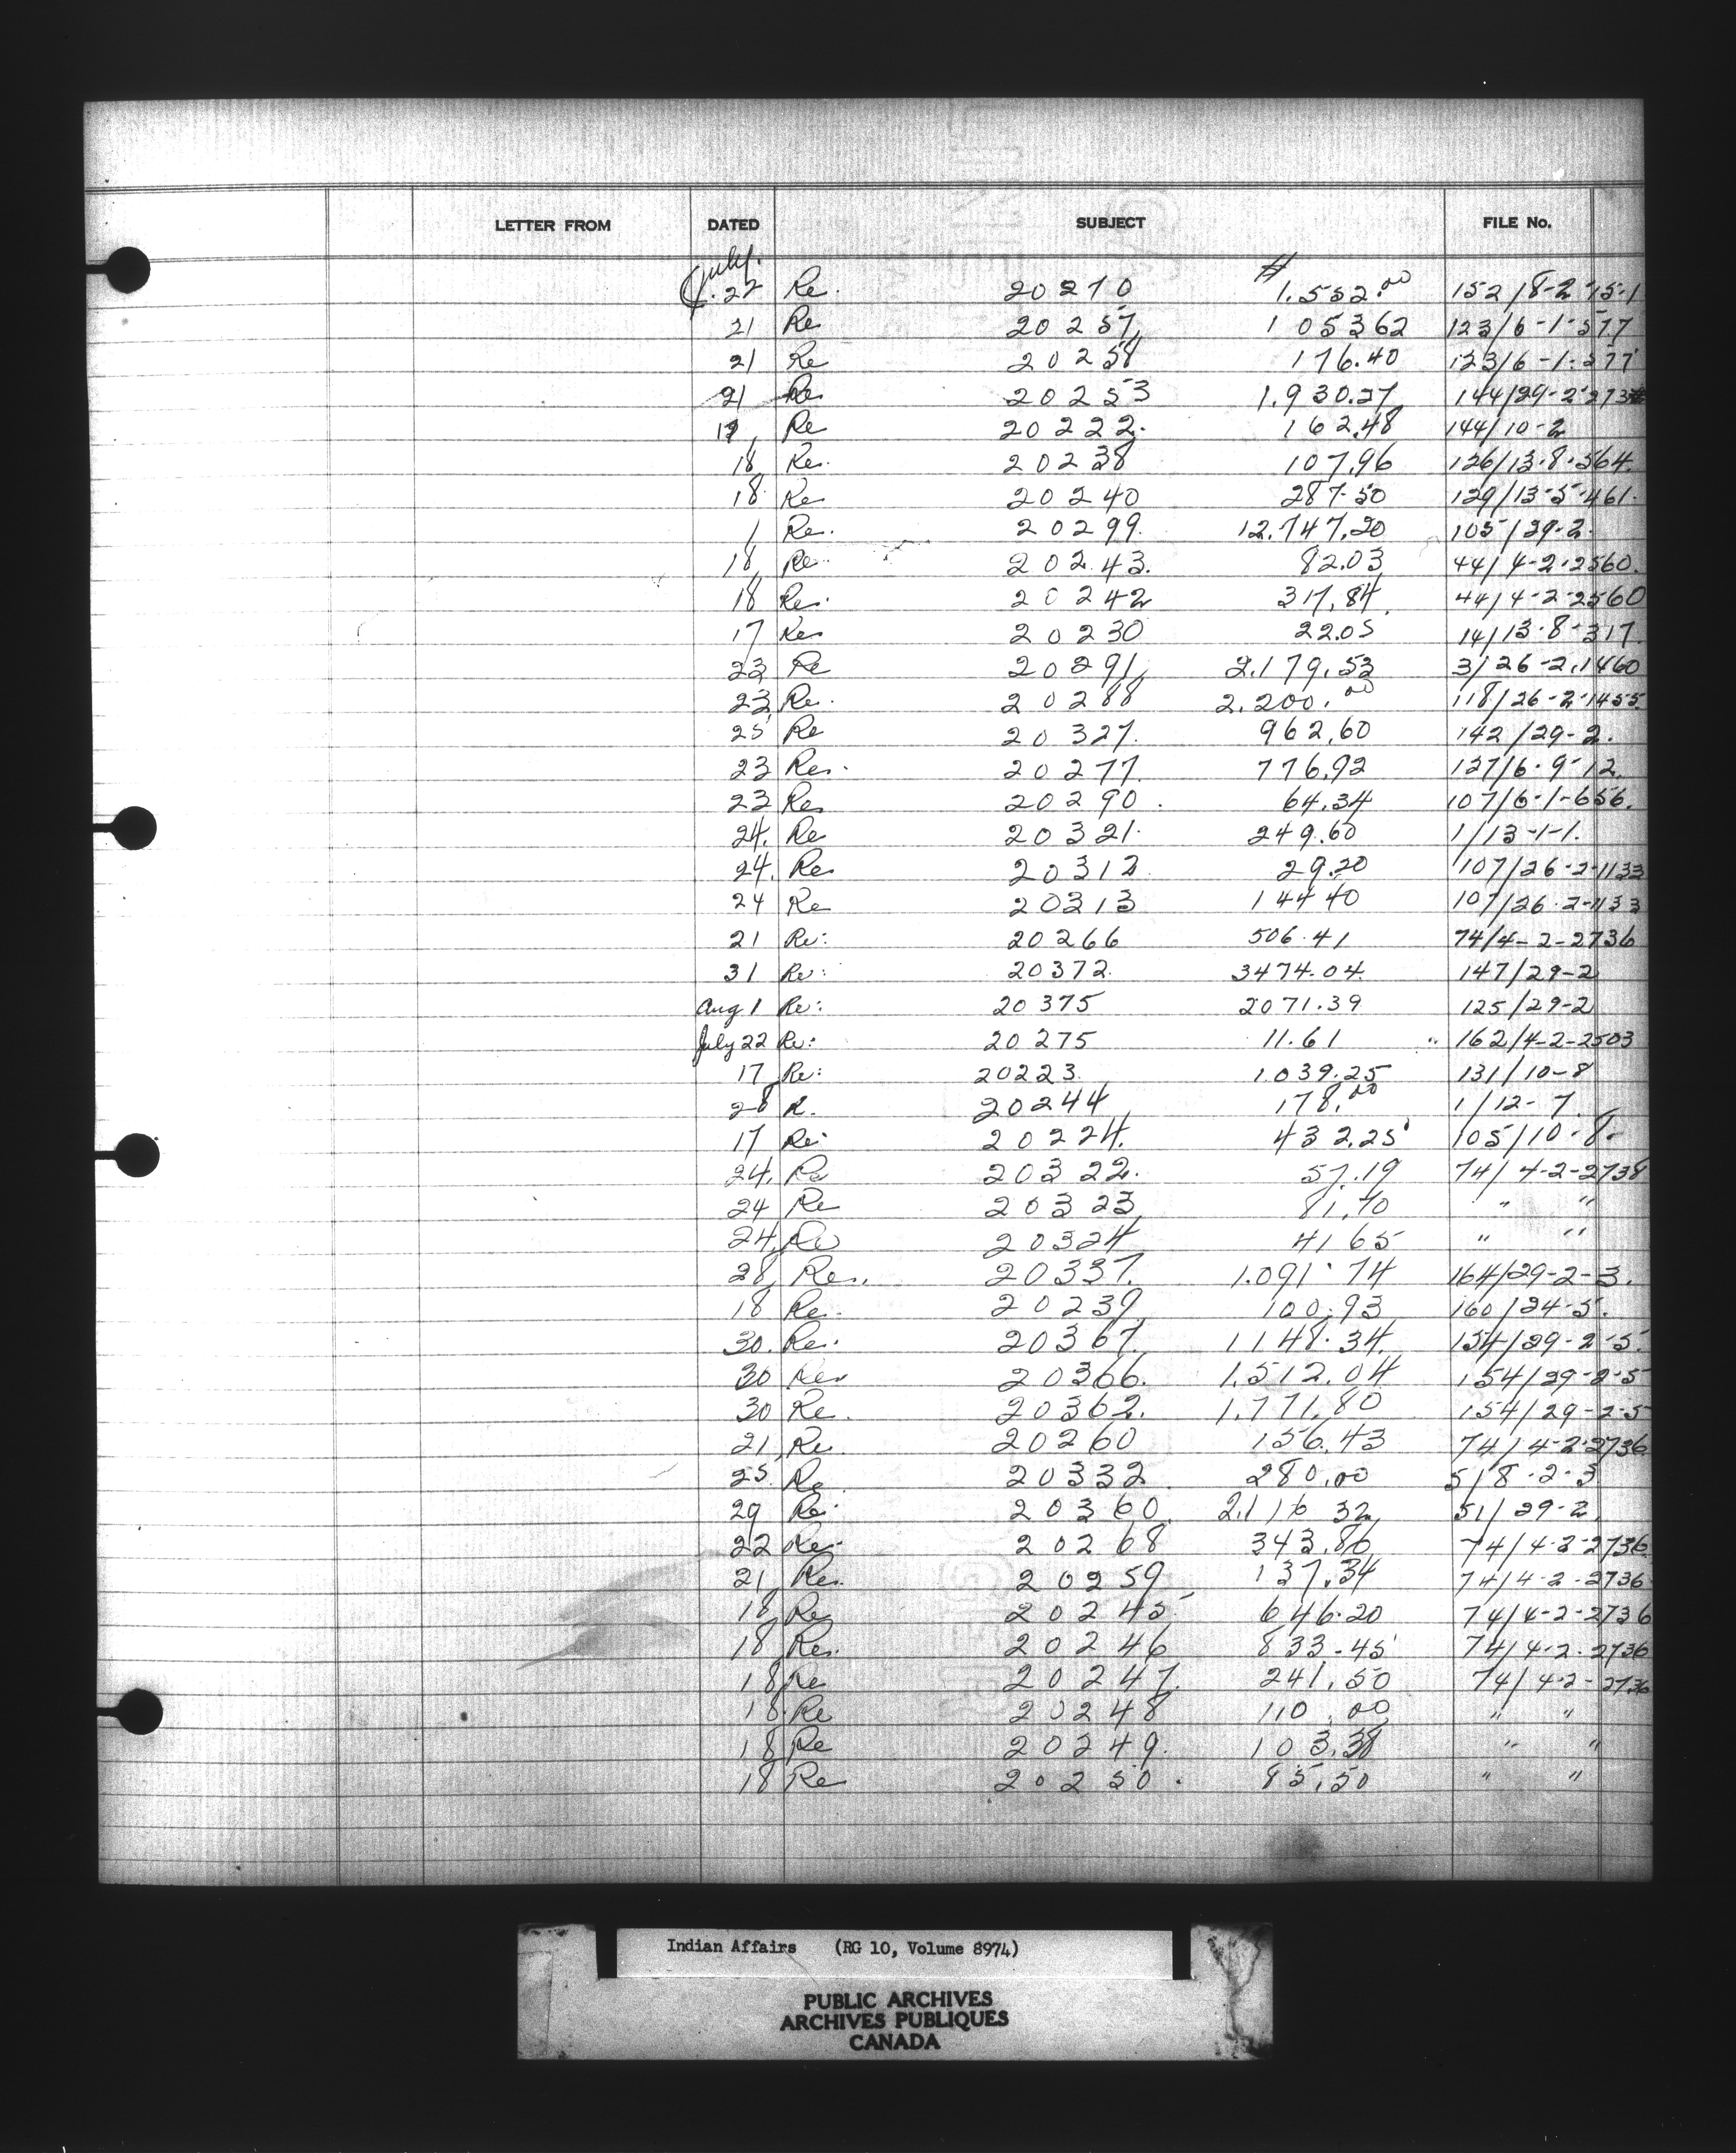 LETTER FROM DATED SUBJECT FILE No.
July.
22 Re. 20270 $1.552.00 152/8-2-15-1
21 Re 20257 1 053 62 123/6-1-577
21 Re 20258 176.40 123/6-1-577
21 Re 20253 1.930.27 144/29-2-273
17 Re 20222. 162.48 144/10-2
18 Re. 20238 107.96 126/13-8-564.
18 Re 20240 287.50 129/13-5-461.
1 Re. 20299. 12.747.20 105/29-2.
18 Re. 20243. 82.03 44/4-2-2560.
18 Re. 20242 317.84 44/4-2-2560
17 Re 20230 22.05 14/13-8-317.
23 Re 20291 2.179.53 3/26-2.1460
23 Re. 20288 2.200.00 118/26-2-1455.
25 Re 20327. 962.60 142/29-2.
23 Re. 20277. 776.92 127/6-9-12.
23 Re 20290. 64.34 107/6-1-656.
24. Re 20321. 249.60 1/13-1-1.
24. Re 20312. 29.20 107/26-2-1133
24 Re 20313 144 40 107/26-2-1133
21 Re: 20266 506.41 74/4-2-2736
31 Re: 20372. 3474.04. 147/29-2
Aug 1 Re: 20375 2071.39 125/29-2
July 22 Re: 20275 11.61 " 162/4-2-2503
17 Re: 20223. 1.039.25 131/10-8
28 R. 20244 178.00 1/12-7.
17 Re: 20224. 432.25 105/10-8-
24. Re 20322. 57.19 74/4-2-2738
24 Re 20323 81.70 " "
24 Re 20324 41 65 " "
28 Re. 20337. 1.091.74 164/29-2-3.
18 Re. 20239 100.93 160/24-5.
30. Re. 20367. 1148.34. 154/29-2-5.
30 Re 20366. 1.512.04 154/29-2-5
30 Re. 20362. 1.771.80 154/29-2-5
21 Re. 20260 156.43 74/4-2-2736
25. Re 20332 280.00 5/8-2-3
29 Re. 20360. 2.116 32 51/29-2
22 Re. 20268 343.86 74/4-2-2736
21 Re. 20259 137.34 74/4-2-2736
18 Re 20245 646.20 74/4-2-2736
18 Re. 20246 833.45 74/4-2-2736
18 Re 20247. 241.50 74/4-2-2736
18 Re 20248 110.00 " "
18 Re 20249. 103.38 " "
18 Re 20250. 85.50 " "
Indian Affairs (RG 10, Volume 8974)
PUBLIC ARCHIVES
ARCHIVES PUBLIQUES
CANADA